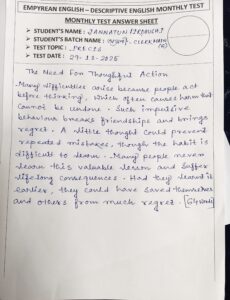 EMPYREAN ENGLISH – DESCRIPTIVE ENGLISH MONTHLY TEST
MONTHLY TEST ANSWER SHEET
➤ STUDENT'S NAME : JANNATUN FIRDAUSI
➤ STUDENT'S BATCH NAME : CLERKSHIP
➤ TEST TOPIC : PRECIS
➤ TEST DATE : 27-11-2025
The Need For Thoughtful Action
Many difficulties arise because people act
before thinking, which often causes harm that
cannot be undone. Such impulsive
behaviour breaks friendships and brings
regret. A little thought could prevent
repeated mistakes, though the habit is
difficult to learn. Many people never
learn this valuable lesson and suffer
lifelong consequences. Had they learned it
earlier, they could have saved themselves
and others from much regret. [61 words]